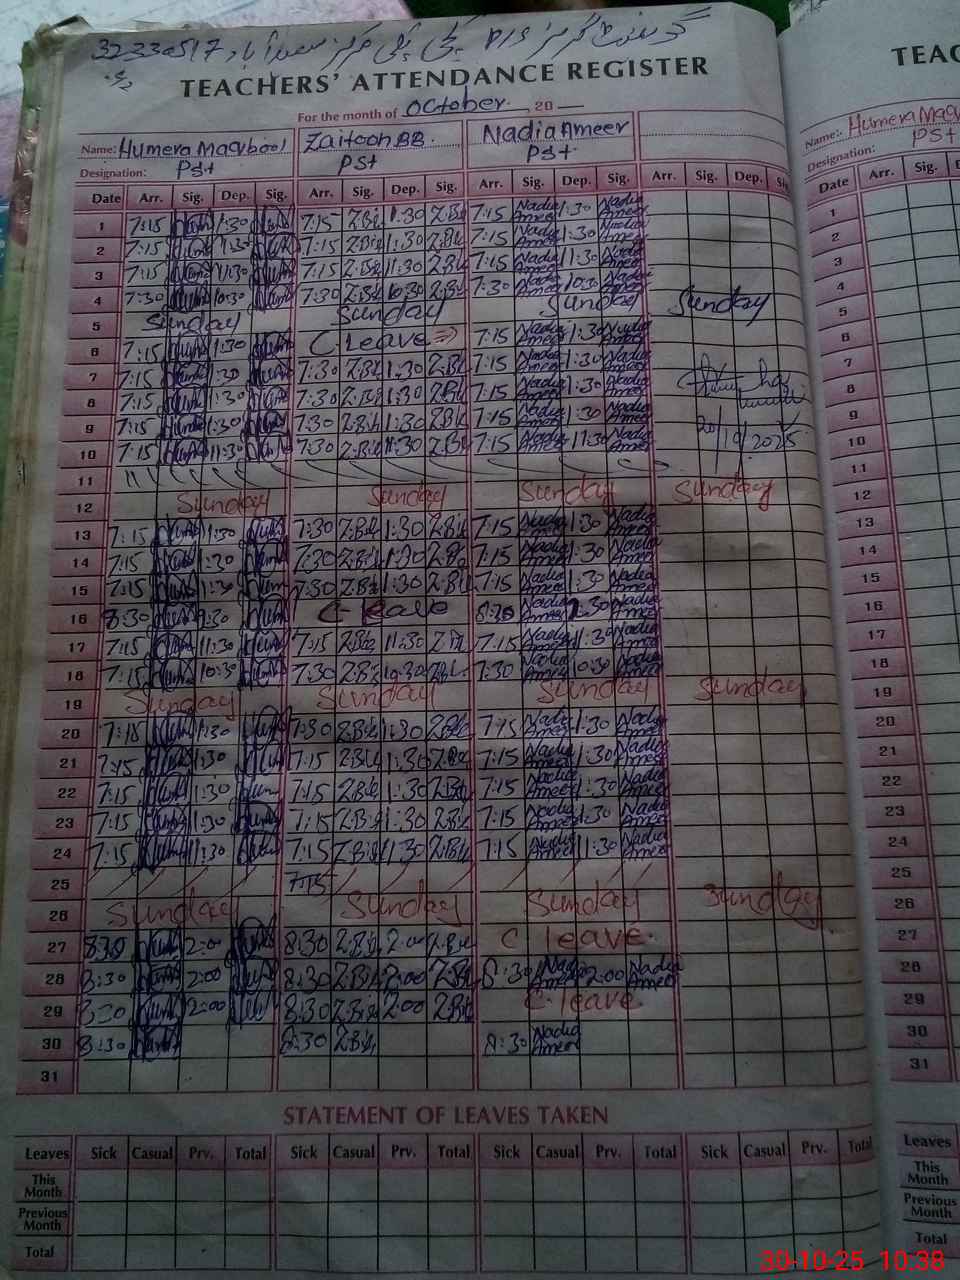 گورنمنٹ گرلز P/S بکی پکی مرکز سعداآباد 32230517
TEACHERS' ATTENDANCE REGISTER
For the month of October 20
Name: Humera Maqbool Zaitoon BB. Nadia Ameer
Designation: PSt PSt PSt
Date Arr. Sig. Dep. Sig. Arr. Sig. Dep. Sig. Arr. Sig. Dep. Sig. Arr. Sig. Dep. Sig
1 7:15 1:30 7:15 Z.Bib 1:30 Z.Bib 7:15 Nadia Ameer 1:30 Nadia Ameer
2 7:15 1:30 7:15 Z.Bib 1:30 Z.Bib 7:15 Nadia Ameer 1:30 Nadia Ameer
3 7:15 11:30 7:15 Z.Bib 11:30 Z.Bib 7:15 Nadia Ameer 11:30 Nadia Ameer
4 7:30 10:30 7:30 Z.Bib 10:30 Z.Bib 7:30 Nadia Ameer 10:30 Nadia Ameer
5 Sunday Sunday Sunday Sunday
6 7:15 1:30 C.Leave 7:15 Nadia Ameer 1:30 Nadia Ameer
7 7:15 1:30 7:30 Z.Bib 1:30 Z.Bib 7:15 Nadia Ameer 1:30 Nadia Ameer
8 7:15 1:30 7:30 Z.Bib 1:30 Z.Bib 7:15 Nadia Ameer 1:30 Nadia Ameer
9 7:15 1:30 7:30 Z.Bib 1:30 Z.Bib 7:15 Nadia Ameer 1:30 Nadia Ameer
10 7:15 11:30 7:30 Z.Bib 11:30 Z.Bib 7:15 Nadia Ameer 11:30 Nadia Ameer 2025
11
12 Sunday Sunday Sunday Sunday
13 7:15 1:30 7:30 Z.Bib 1:30 Z.Bib 7:15 Nadia Ameer 1:30 Nadia Ameer
14 7:15 1:30 7:30 Z.Bib 1:30 Z.Bib 7:15 Nadia Ameer 1:30 Nadia Ameer
15 7:15 1:30 7:30 Z.Bib 1:30 Z.Bib 7:15 Nadia Ameer 1:30 Nadia Ameer
16 8:30 C-leave 8:30 Nadia Ameer Nadia Ameer
17 7:15 11:30 7:15 Z.Bib 11:30 Z.Bib 7:15 Nadia Ameer 11:30 Nadia Ameer
18 7:15 10:30 7:30 Z.Bib 10:30 Z.Bib 7:30 Nadia Ameer 10:30 Nadia Ameer
19 Sunday Sunday Sunday Sunday
20 7:15 1:30 7:30 Z.Bib 1:30 Z.Bib 7:15 Nadia Ameer 1:30 Nadia Ameer
21 7:15 1:30 7:15 Z.Bib 1:30 Z.Bib 7:15 Nadia Ameer 1:30 Nadia Ameer
22 7:15 1:30 7:15 Z.Bib 1:30 Z.Bib 7:15 Nadia Ameer 1:30 Nadia Ameer
23 7:15 1:30 7:15 Z.Bib 1:30 Z.Bib 7:15 Nadia Ameer 1:30 Nadia Ameer
24 7:15 11:30 7:15 Z.Bib 11:30 Z.Bib 7:15 Nadia Ameer 11:30 Nadia Ameer
25 7:15
26 Sunday Sunday Sunday Sunday
27 8:30 2:00 8:30 Z.Bib 2:00 Z.Bib C leave.
28 8:30 2:00 8:30 Z.Bib 2:00 Z.Bib 8:30 Nadia Ameer 2:00 Nadia Ameer
29 8:30 2:00 8:30 Z.Bib 2:00 Z.Bib C.leave.
30 8:30 8:30 Z.Bib 8:30 Nadia Ameer
31
STATEMENT OF LEAVES TAKEN
Leaves Sick Casual Prv. Total Sick Casual Prv. Total Sick Casual Prv. Total Sick Casual Prv. Total
This Month
Previous Month
Total
TEAC
Name:- Humera Maqb
Designation: PSt
Date Arr. Sig. D
1
2
3
4
5
6
7
8
9
10
11
12
13
14
15
16
17
18
19
20
21
22
23
24
25
26
27
28
29
30
31
Leaves
This Month
Previous Month
Total
30-10-25 10:38